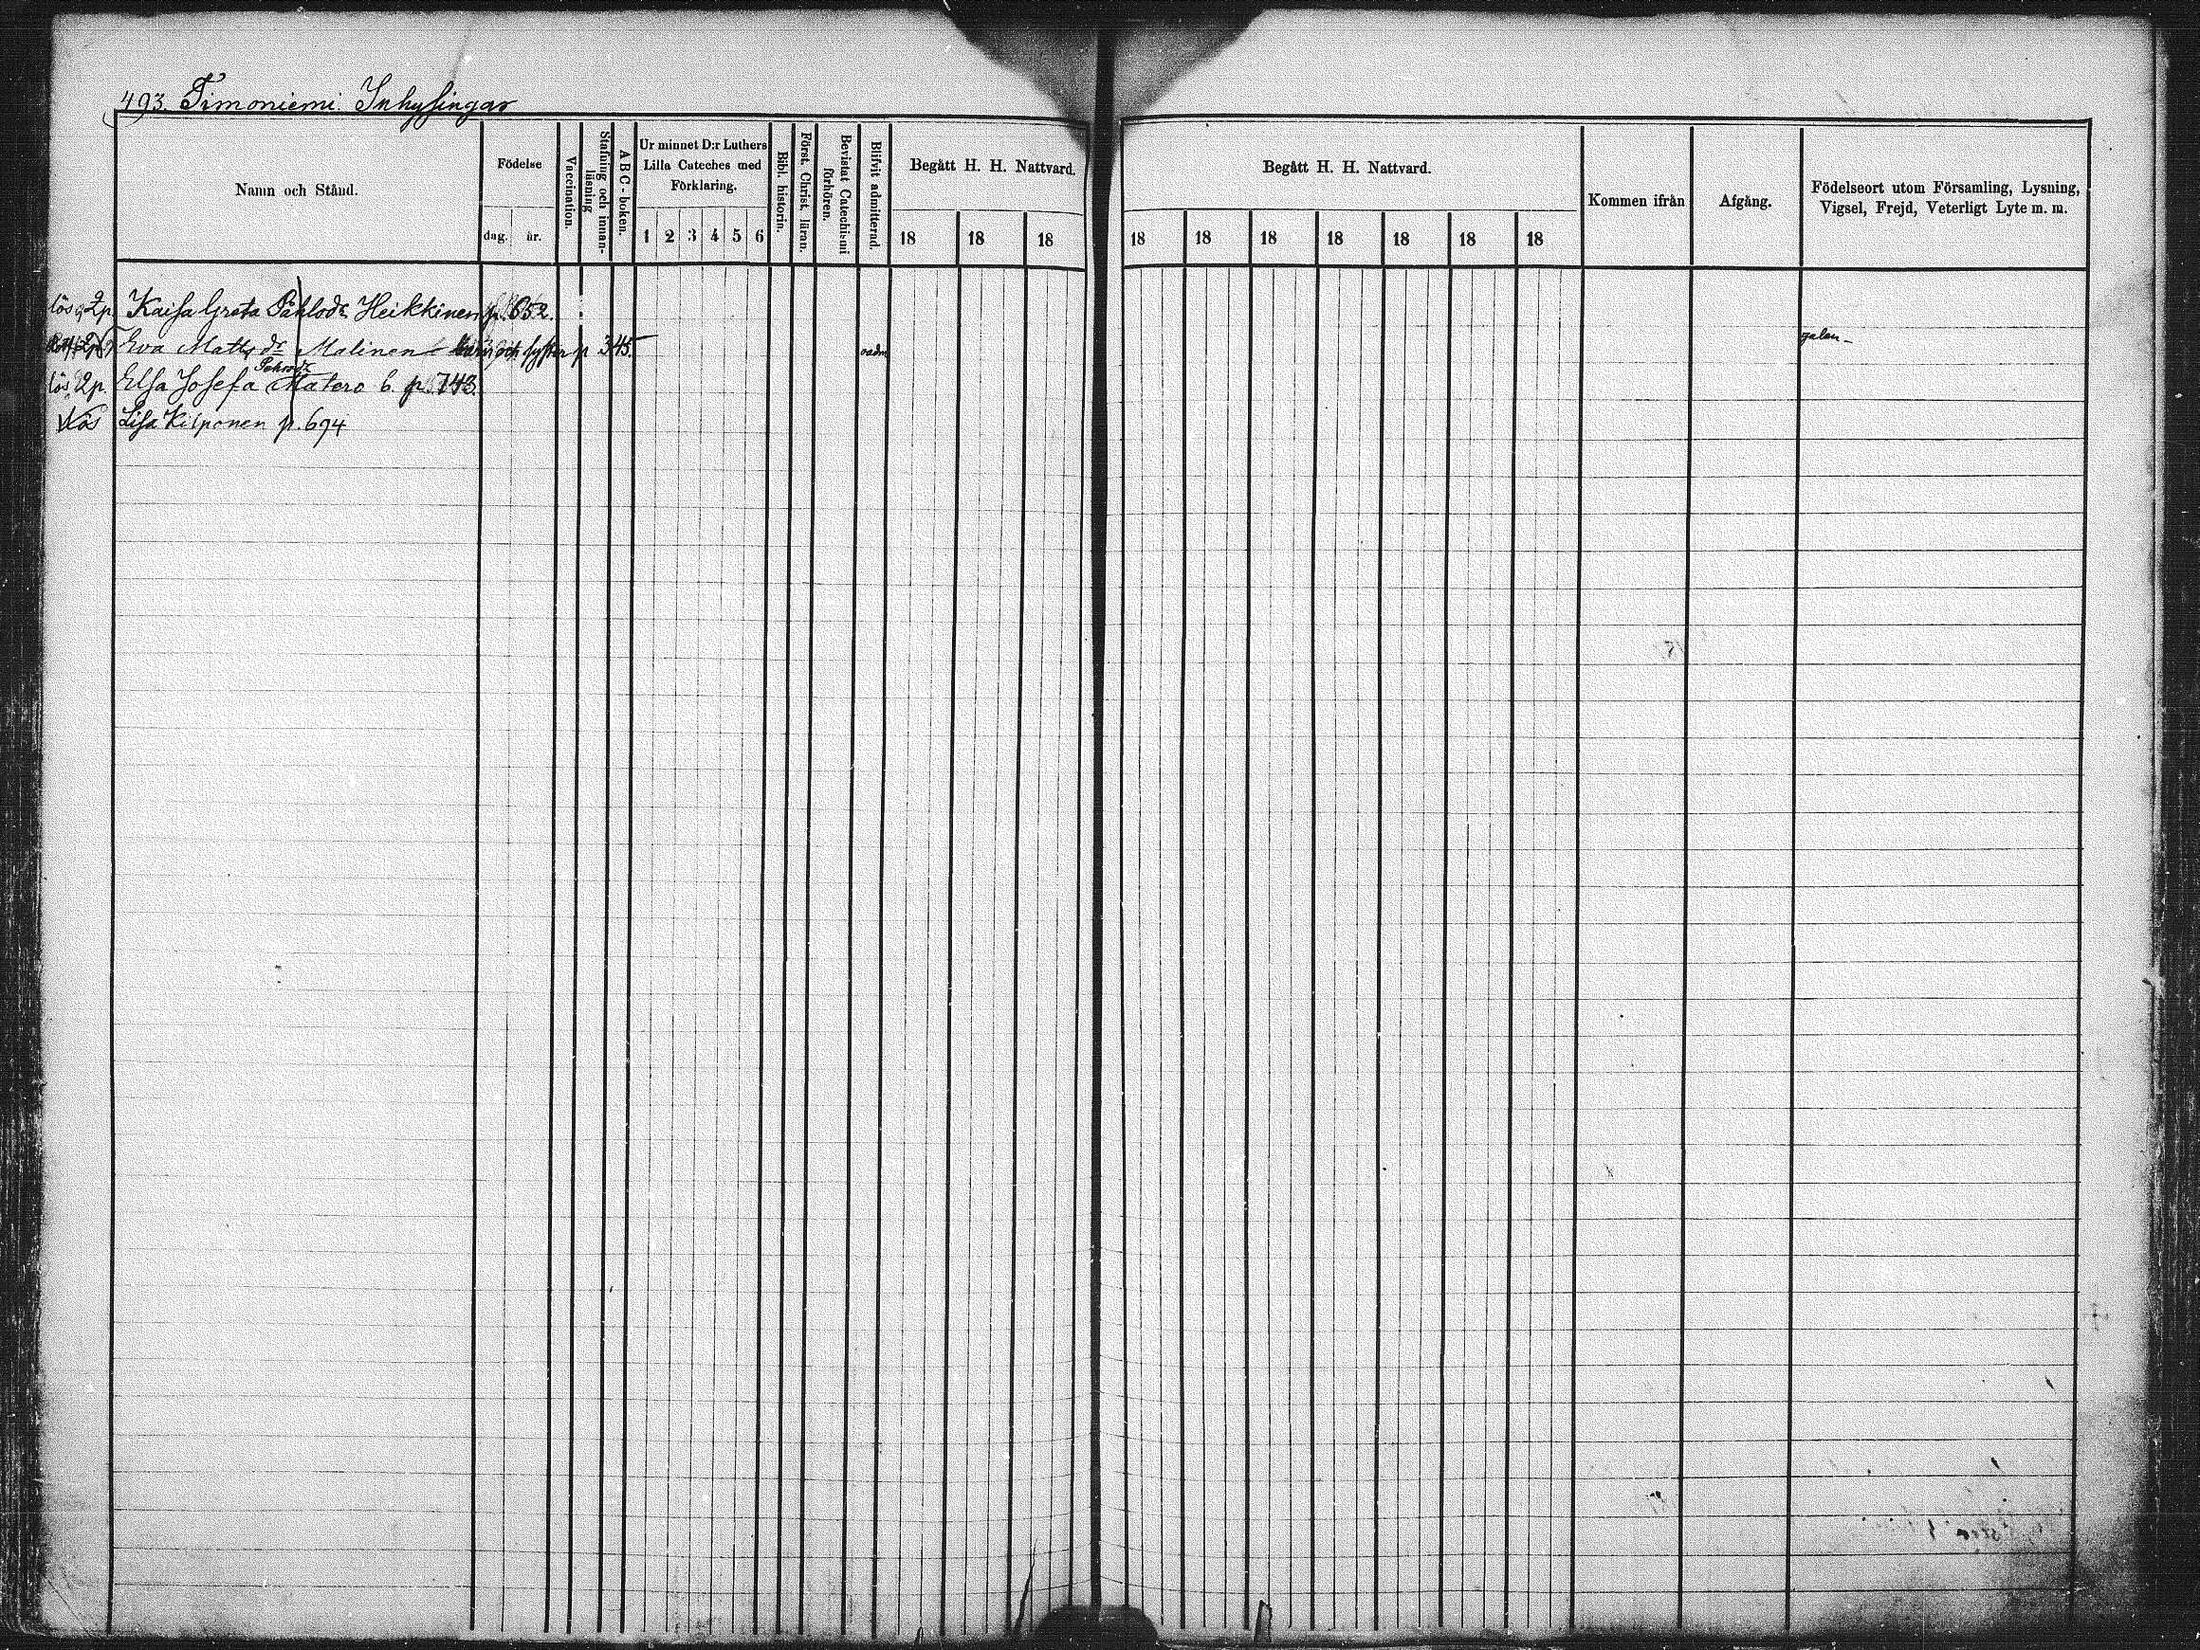 493. Timoniemi. Inhysingar
Namn och Stånd.
Födelse
dag. år.
Vaccination.
Stafning och innanläsning
ABC-boken.
Ur minnet D:r Luthers
Lilla Cateches med
Förklaring.
1 2 3 4 5 6
Bibl. historin.
Först. Christ. läran.
Bevistat Catechismi förhören.
Blifvit admitterad.
Begått H. H. Nattvard.
18 18 18
Begått H. H. Nattvard.
18 18 18 18 18 18 18
Kommen ifrån
Afgång.
Födelseort utom Församling, Lysning,
Vigsel, Frejd, Veterligt Lyte m. m.
lös 2p. Kaisa Greta Påhlodr Heikkinen p. 652.
Eva Mattsdr Malinen och syster p 345. oadm galen
lös 2p. Elsa Josefa Matero b. p. 743.
Lös Lisa Kilponen p. 694